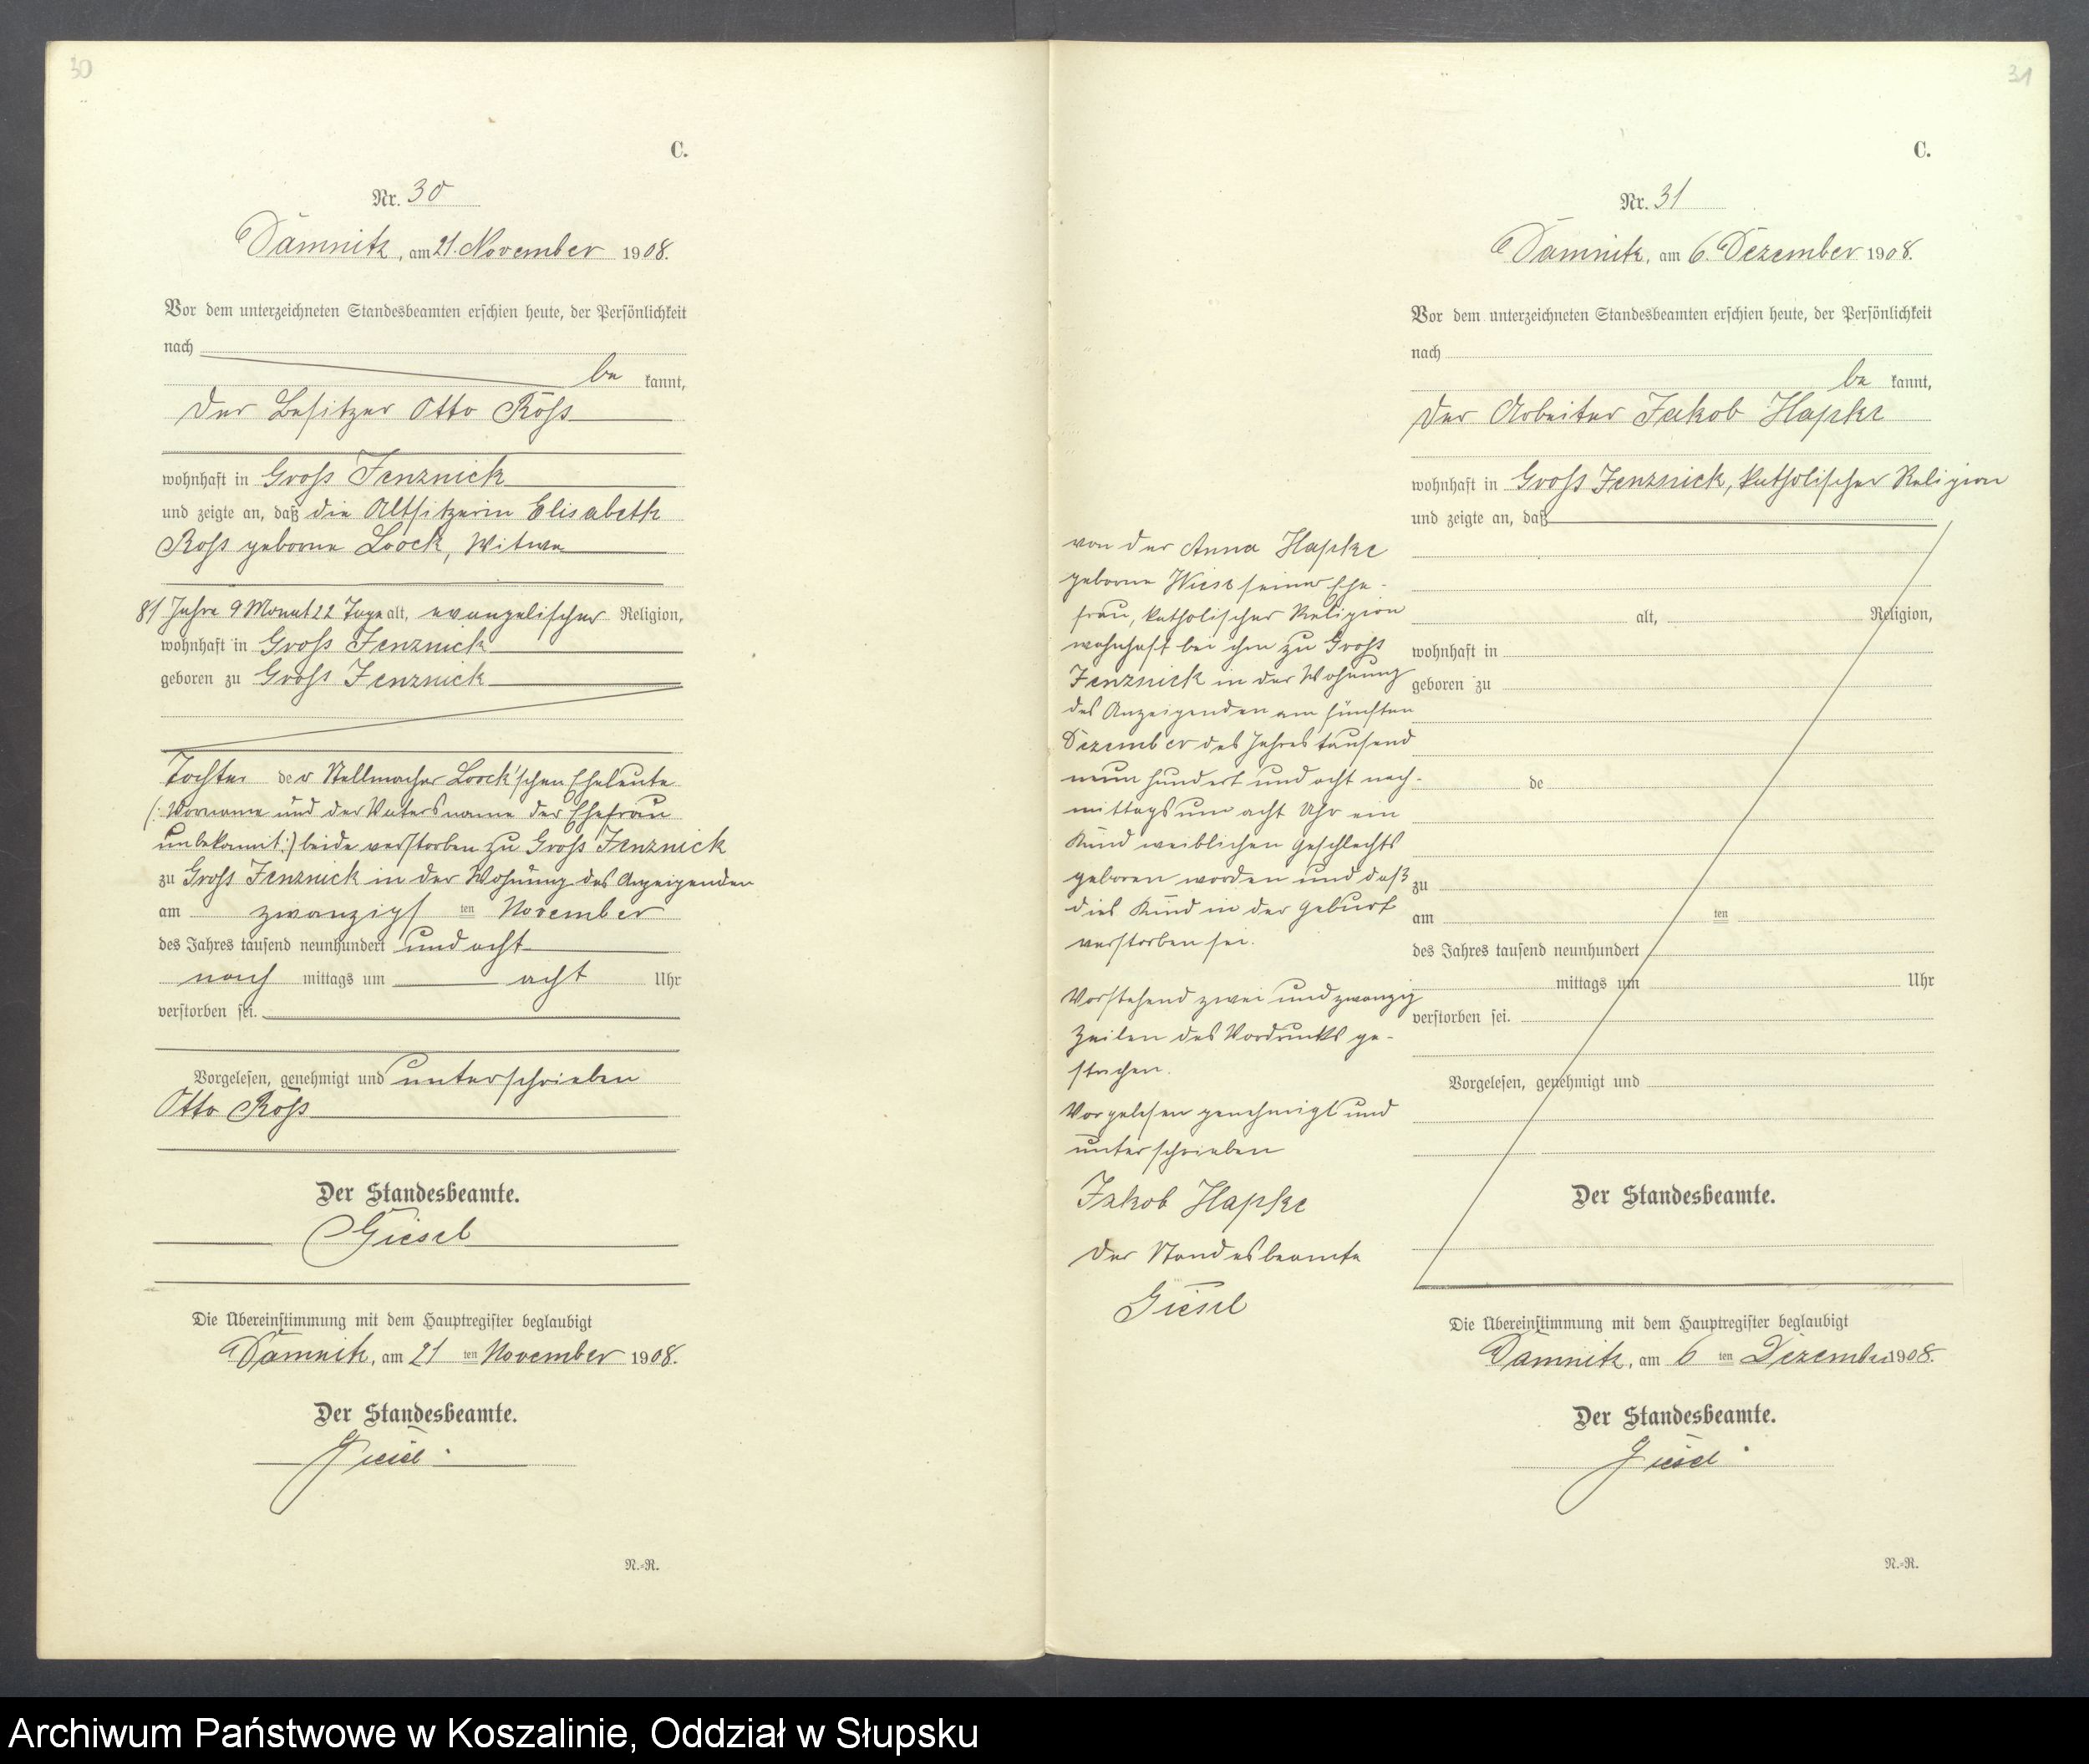 30
C.
Nr. 30
Damnitz, am 21. November 1908.
Vor dem unterzeichneten Standesbeamten erschien heute, der Persönlichkeit
nach
be kannt,
der Besitzer Otto Roß
wohnhaft in Groß Jenznick
und zeigte an, daß die Altsitzerin Elisabeth
Roß geborne Loock, Witwe
81 Jahre 9 Monat 22 Tage alt, evangelischer Religion,
wohnhaft in Groß Jenznick
geboren zu Groß Jenznick
Tochter der Stellmacher Loock'schen Eheleute
(: Vorname und der Vatersname der Ehefrau
unbekannt :) beide verstorben zu Groß Jenznick
zu Groß Jenznick in der Wohnung des Anzeigenden
am zwanzigsten November
des Jahres tausend neunhundert und acht
nach mittags um acht Uhr
verstorben sei.
Vorgelesen, genehmigt und unterschrieben
Otto Roß
Der Standesbeamte.
Giesel
Die Übereinstimmung mit dem Hauptregister beglaubigt
Damnitz, am 21 ten November 1908.
Der Standesbeamte.
Giesel.
N.-R.
31
C.
Nr. 31
Damnitz, am 6. Dezember 1908.
Vor dem unterzeichneten Standesbeamten erschien heute, der Persönlichkeit
nach
be kannt,
der Arbeiter Jakob Hapke
wohnhaft in Groß Jenznick, katholischer Religion
und zeigte an, daß
von der Anna Hapke
geborne Wiese seiner Ehe-
frau, katholischer Religion
wohnhaft bei ihm zu Groß
Jenznick in der Wohnung
des Anzeigenden am fünften
Dezember des Jahres tausend
neun hundert und acht nach-
mittags um acht Uhr ein
Kind weiblichen Geschlechts
geboren worden und daß
dies Kind in der Geburt
verstorben sei.
Vorstehend zwei und zwanzig
Zeilen des Vordrucks ge-
strichen.
Vorgelesen genehmigt und
unterschrieben
Jakob Hapke
Der Standesbeamte
Giesel
alt, Religion,
wohnhaft in
geboren zu
de
zu
am ten
des Jahres tausend neunhundert
mittags um Uhr
verstorben sei.
Vorgelesen, genehmigt und
Der Standesbeamte.
Die Übereinstimmung mit dem Hauptregister beglaubigt
Damnitz, am 6 ten Dezember 1908.
Der Standesbeamte.
Giesel.
N.-R.
Archiwum Państwowe w Koszalinie, Oddział w Słupsku